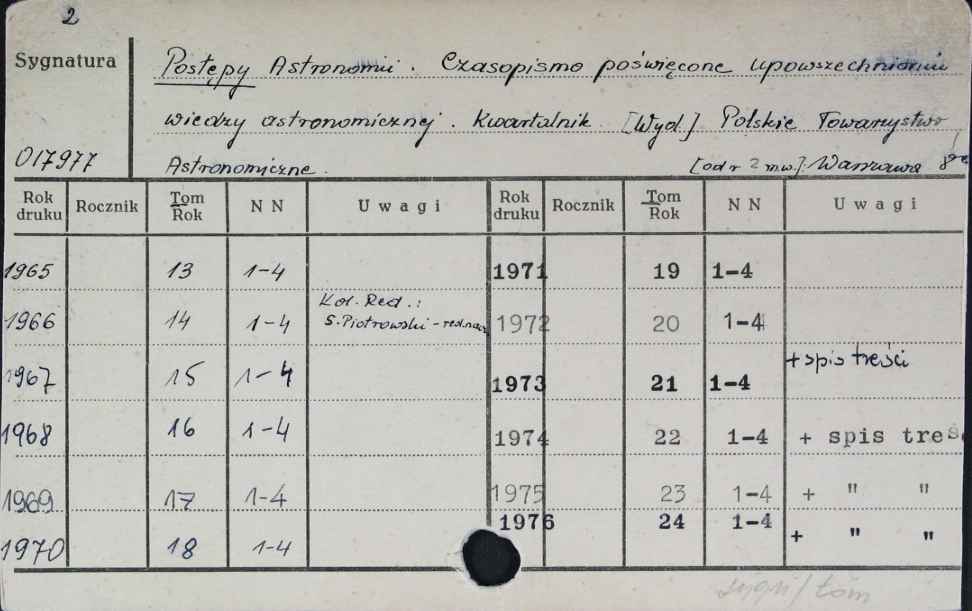 2
Sygnatura
Postępy Astronomii. Czasopismo poświęcone upowszechnianiu
wiedzy astronomicznej. Kwartalnik. [Wyd.] Polskie Towarzystwo
017977
Astronomiczne. [od r 2 m.w.]. Warszawa 8°
Rok druku Rocznik Tom Rok N N Uwagi Rok druku Rocznik Tom Rok N N Uwagi
1965 13 1-4 1971 19 1-4
Kol. Red.:
1966 14 1-4 S. Piotrowski - red. nacz 1972 20 1-4
+ spis treści
1967 15 1-4 1973 21 1-4
1968 16 1-4 1974 22 1-4 + spis treś
1969 17 1-4 1975 23 1-4 + " "
1976 24 1-4 + " "
1970 18 1-4